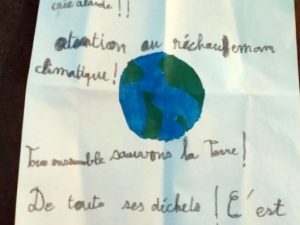 alarde !!
atention au réchaufemam
climatique !
Tous ensemble sauvons la Terre !
De touts ses déchets ! C'est